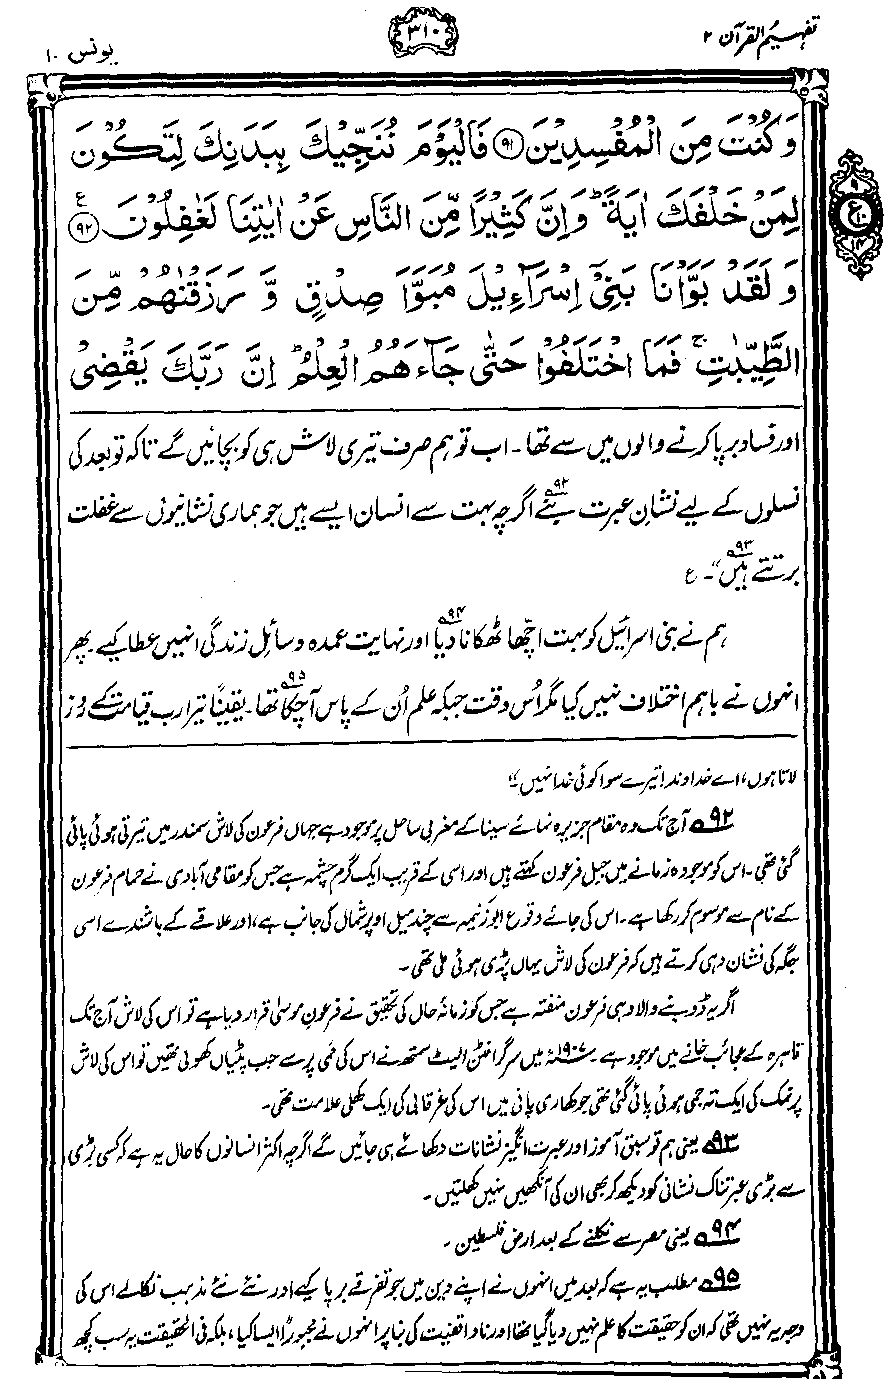 تفہیم القرآن ۲
۳۱۰
یونس ۱۰
وَكُنْتَ مِنَ الْمُفْسِدِيْنَ ﴿۹۱﴾ فَالْيَوْمَ نُنَجِّيْكَ بِبَدَنِكَ لِتَكُوْنَ
لِمَنْ خَلْفَكَ اٰيَةً ؕ وَاِنَّ كَثِيْرًا مِّنَ النَّاسِ عَنْ اٰيٰتِنَا لَغٰفِلُوْنَ ﴿۹۲﴾ ع
وَلَقَدْ بَوَّاْنَا بَنِيْۤ اِسْرَآءِيْلَ مُبَوَّاَ صِدْقٍ وَّ رَزَقْنٰهُمْ مِّنَ
الطَّيِّبٰتِ ۚ فَمَا اخْتَلَفُوْا حَتّٰى جَآءَهُمُ الْعِلْمُ ؕ اِنَّ رَبَّكَ يَقْضِيْ
۹
ع ۱۰
۱۴
اور فساد برپا کرنے والوں میں سے تھا۔ اب تو ہم صرف تیری لاش ہی کو بچائیں گے تاکہ تو بعد کی
نسلوں کے لیے نشانِ عبرت بنے ۹۲ اگرچہ بہت سے انسان ایسے ہیں جو ہماری نشانیوں سے غفلت
برتتے ہیں ۹۳“۔ ع
ہم نے بنی اسرائیل کو بہت اچھا ٹھکانا دیا ۹۴ اور نہایت عمدہ وسائلِ زندگی انہیں عطا کیے۔ پھر
انہوں نے باہم اختلاف نہیں کیا مگر اُس وقت جبکہ علم اُن کے پاس آچکا تھا ۹۵۔ یقیناً تیرا رب قیامت کے روز
لاتا ہوں، اے خداوند! تیرے سوا کوئی خدا نہیں“
۹۲ آج تک وہ مقام جزیرہ نمائے سینا کے مغربی ساحل پر موجود ہے جہاں فرعون کی لاش سمندر میں تیرتی ہوئی پائی
گئی تھی۔ اس کو موجودہ زمانے میں جبل فرعون کہتے ہیں اور اسی کے قریب ایک گرم چشمہ ہے جس کو مقامی آبادی نے حمام فرعون
کے نام سے موسوم کر رکھا ہے۔ اس کی جائے وقوع ابوزنیمہ سے چند میل اوپر شمال کی جانب ہے، اور علاقے کے باشندے اسی
جگہ کی نشان دہی کرتے ہیں کہ فرعون کی لاش یہاں پڑی ہوئی ملی تھی۔
اگر یہ ڈوبنے والا وہی فرعون منفتہ ہے جس کو زمانۂ حال کی تحقیق نے فرعونِ موسیٰ قرار دیا ہے تو اس کی لاش آج تک
قاہرہ کے عجائب خانے میں موجود ہے۔ ۱۹۰۷ء میں سر گرافٹن الیٹ سمتھ نے اس کی ممی پر سے جب پٹیاں کھولی تھیں تو اس کی لاش
پر نمک کی ایک تہ جمی ہوئی پائی گئی تھی جو کھاری پانی میں اس کی غرقابی کی ایک کھلی علامت تھی۔
۹۳ یعنی ہم تو سبق آموز اور عبرت انگیز نشانات دکھائے ہی جائیں گے اگرچہ اکثر انسانوں کا حال یہ ہے کہ کسی بڑی
سے بڑی عبرتناک نشانی کو دیکھ کر بھی ان کی آنکھیں نہیں کھلتیں۔
۹۴ یعنی مصر سے نکلنے کے بعد ارض فلسطین۔
۹۵ مطلب یہ ہے کہ بعد میں انہوں نے اپنے دین میں جو تفرقے برپا کیے اور نئے نئے مذہب نکالے اس کی
وجہ یہ نہیں تھی کہ ان کو حقیقت کا علم نہیں دیا گیا تھا اور ناواقفیت کی بنا پر انہوں نے مجبوراً ایسا کیا، بلکہ فی الحقیقت یہ سب کچھ